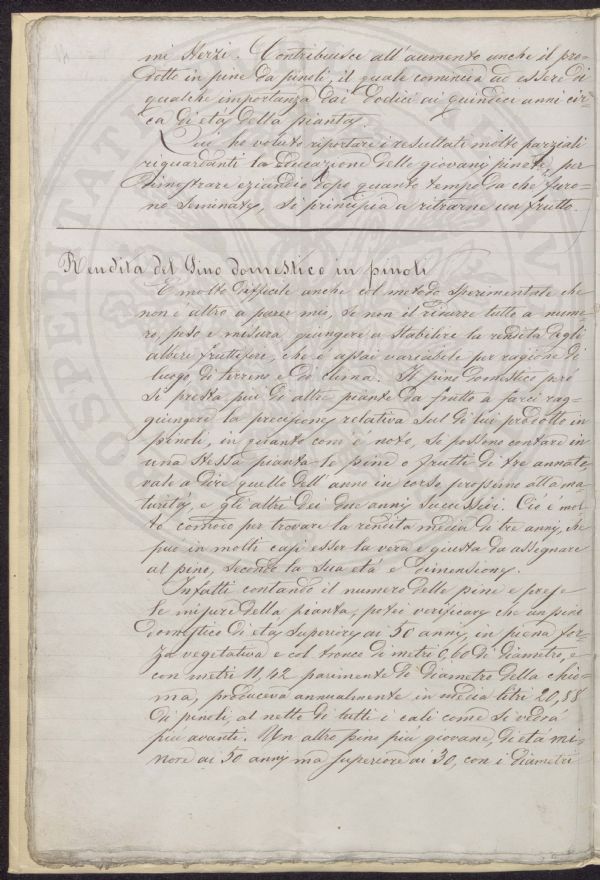 mi Sterzi. Contribuisce all'aumento anche il pro-
dotto in pine da pinoli, il quale comincia ad essere di
qualche importanza dai dodici ai quindici anni cir-
ca di età della pianta.
Qui ho voluto riportare i resultati molto parziali
riguardanti la educazione delle giovani pinete, per
dimostrare eziandio dopo quanto tempo da che furo-
no seminate, si principia a ritrarne un frutto.
Rendita del Pino domestico in pinoli
È molto difficile anche col metodo sperimentale che
non è altro a parer mio, se non il ridurre tutto a nume-
ro, peso e misura, giungere a stabilire la rendita degli
alberi fruttiferi, che è assai variabile per ragione di
luogo, di terreno e di clima. Il pino domestico però
si presta più di altre piante da frutto a farci rag-
giungere la precisione relativa sul di lui prodotto in
pinoli, in quanto com'è noto, si possono contare in
una stessa pianta le pine o frutti di tre annate,
vale a dire quello dell'anno in corso prossimo alla ma-
turità, e gli altri dei due anni successivi. Ciò è mol-
to comodo per trovare la rendita media di tre anni, che
può in molti casi esser la vera e giusta da assegnare
al pino, secondo la sua età e dimensione.
Infatti contando il numero delle pine e prese
le misure della pianta, potei verificare che un pino
domestico di età superiore ai 50 anni, in piena for-
za vegetativa e col tronco di metri 0,60 di diametro, e
con metri 11,42 parimente di diametro della chio-
ma, produceva annualmente in media litri 20,88
di pinoli, al netto di tutti i cali come si vedrà
più avanti. Un altro pino più giovane, di età mi-
nore ai 50 anni ma superiore ai 30, con i diametri